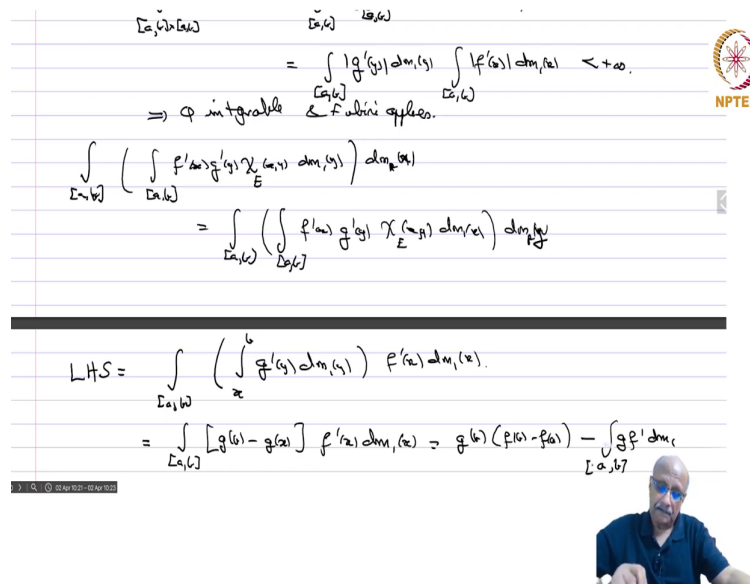 [a,b]×[a,b] [a,b] [a,b]
= ∫[a,b] |g'(y)| dm₁(y) ∫[a,b] |f'(x)| dm₁(x) < +∞.
⇒ φ integrable & Fubini applies.
∫[a,b] ( ∫[a,b] f'(x) g'(y) χ_E(x,y) dm₁(y) ) dm₁(x)
= ∫[a,b] ( ∫[a,b] f'(x) g'(y) χ_E(x,y) dm₁(x) ) dm₁(y)
LHS = ∫[a,b] ( ∫ₓᵇ g'(y) dm₁(y) ) f'(x) dm₁(x).
= ∫[a,b] [g(b) - g(x)] f'(x) dm₁(x) = g(b) (f(b) - f(a)) - ∫[a,b] g f' dm₁
NPTE
02 Apr 10:21 - 02 Apr 10:23